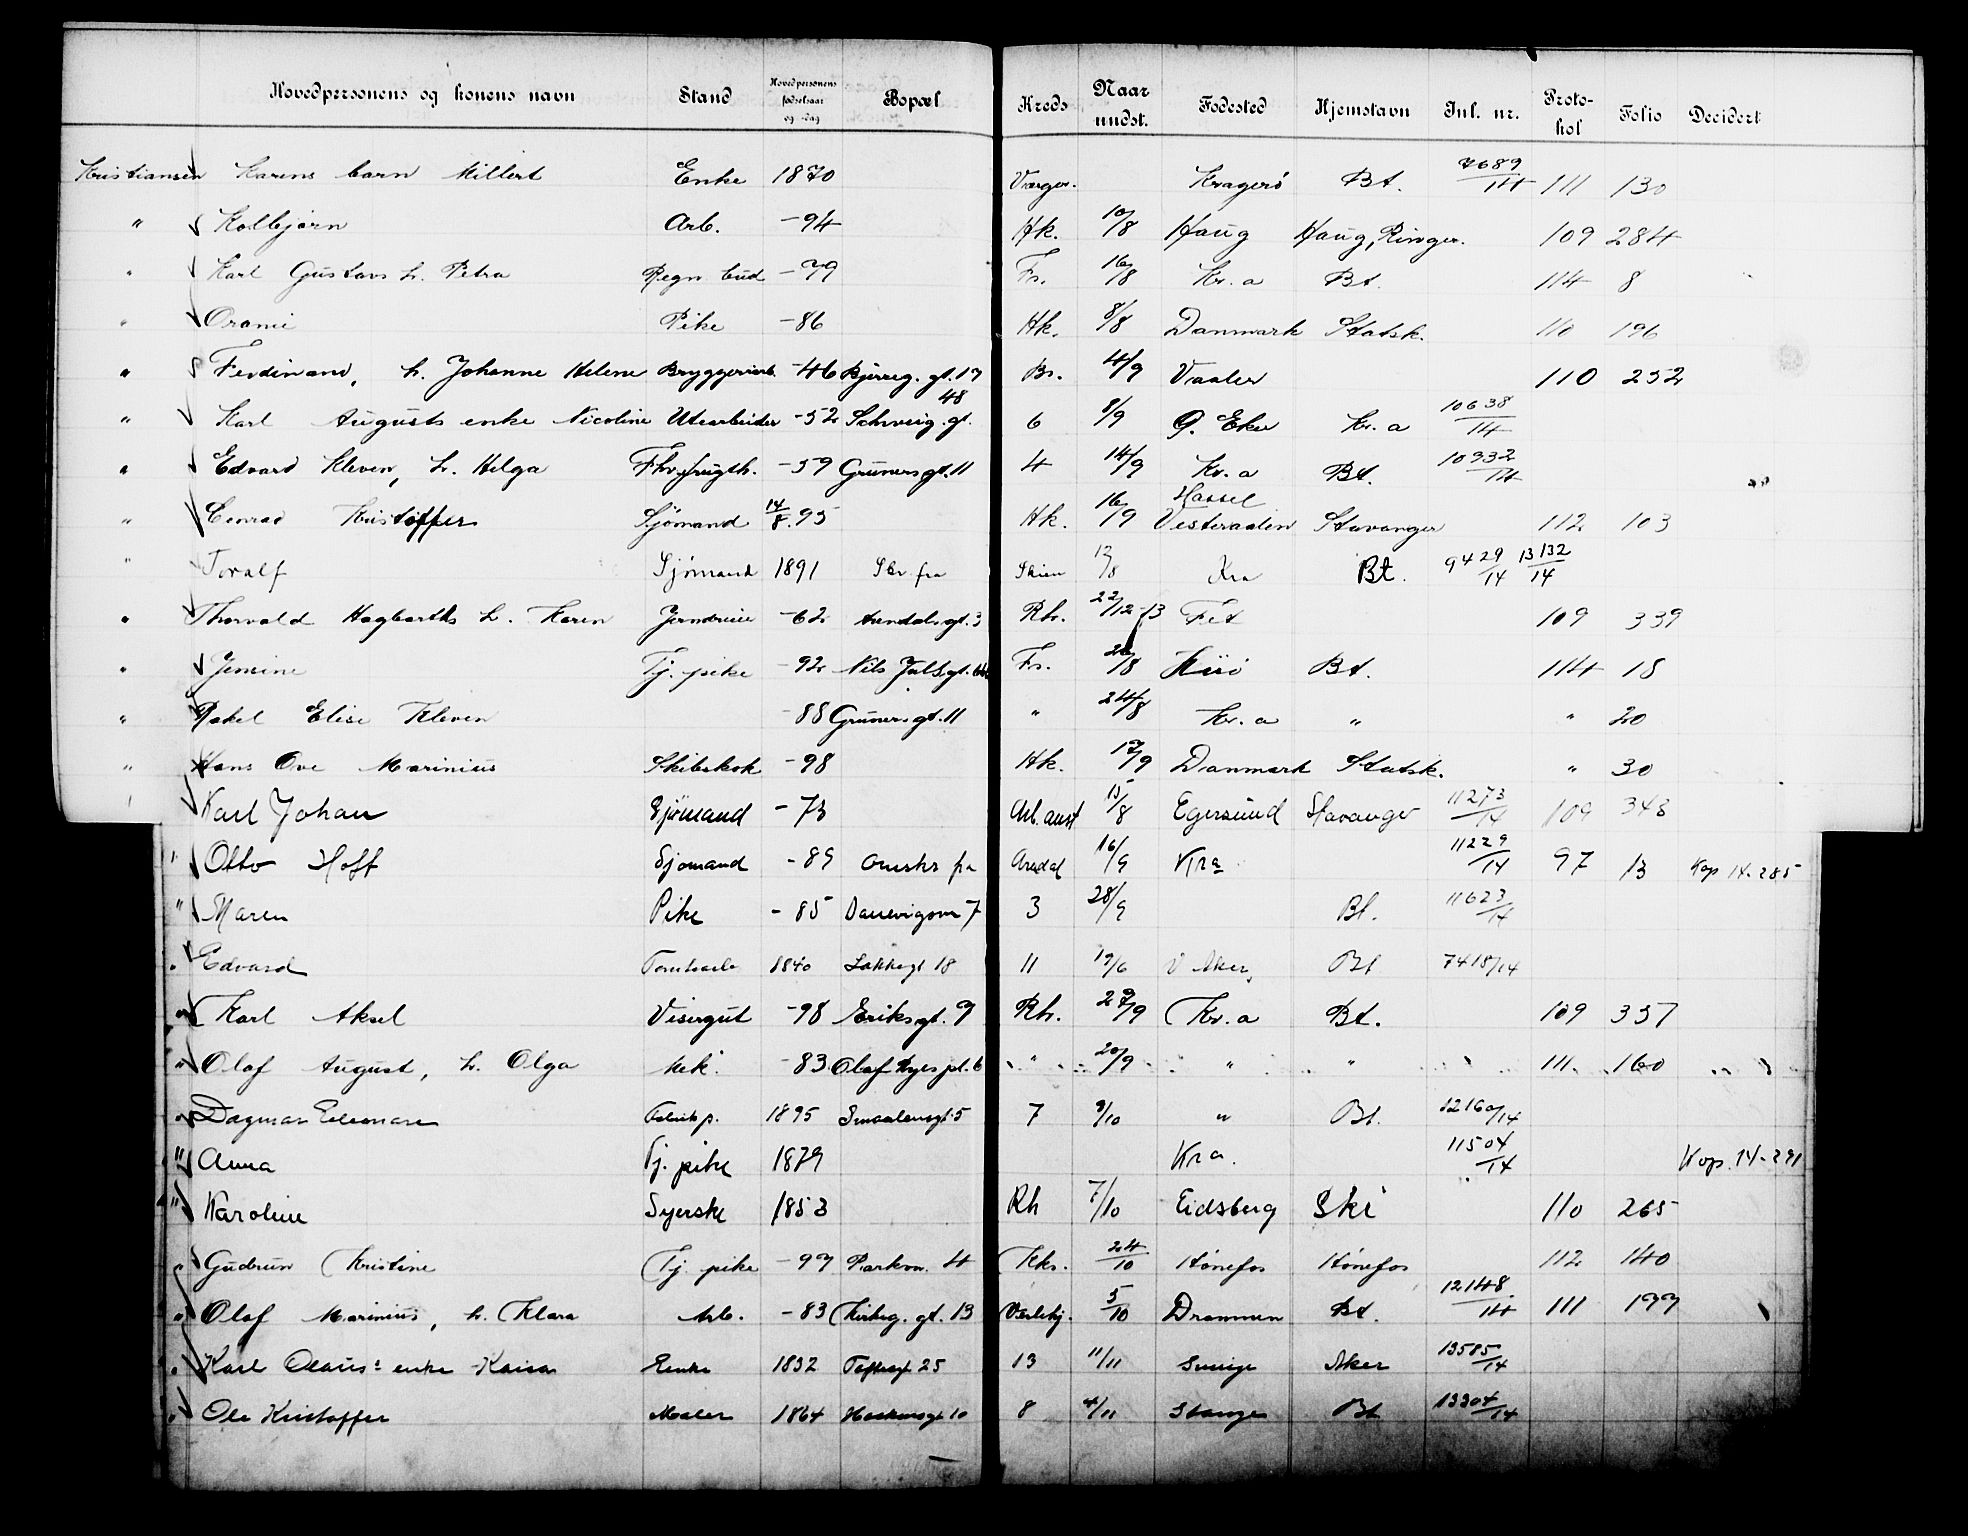 Hovedpersonens og konens navn | Stand | Hovedpersonens fødselsaar og -dag | Bopæl | Kreds | Naar undst. | Fødested | Hjemstavn | Inl. nr. | Protokol | Folio | Decidert
Kristiansen Karens barn Millert | Enke | 1870 | Værger. | Kragerø | Bt. | 7689/14 | 111 | 130
" Kolbjørn | Arb. | -94 | Hk. | 10/8 | Haug | Haug, Ringer. | 109 | 284
" Karl Gustavs h. Petra | Regn. bud | -79 | Fr. | 16/8 | Kr.a | Bt. | 114 | 8
" Orani | Pike | -86 | Hk. | 8/8 | Danmark | Statsk. | 110 | 196
" Ferdinand, h. Johanne Helene | Bryggeriarb. | -46 | Bjerreg. gt. 17 | Br. | 4/9 | Vaaler | 110 | 252
" Karl Augusts enke Nicoline | Utearbeider | -52 | Schweig. gt. 48 | 6 | 8/9 | Ø. Eker | Kr.a | 10638/14
" Edvard Kleven, h. Helga | -59 | Gruners gt. 11 | 4 | 14/9 | Kr.a | Bt. | 10932/14
" Conrad Kristoffer | Sjömand | 14/8.95 | Hk. | 16/9 | Hassel Vesteraalen | Stavanger | 112 | 103
" Toralf | Sjömand | 1891 | Skr. fra | Skien | 12/8 | Kra | Bt. | 9429/14 13132/14
" Thorvald Hagbarths h. Karen | Jerndreier | -62 | Arendals gt. 3 | Rh. | 22/12-13 | Fet | 109 | 339
" Jensine | Tj. pike | -92 | Nils Juls gt. | Fr. | 20/8 | Bt. | 114 | 18
" Rakel Elise Kleven | -88 | Gruners gt. 11 | " | 24/8 | Kr.a | " | " | 20
" Hans Ove Marinius | Skibskok | -98 | Hk. | 17/9 | Danmark | Statsk. | " | 30
Karl Johan | Sjömand | -73 | Arb. anst | 15/8 | Egersund | Stavanger | 11273/14 | 109 | 343
" Otto Hoff | Sjömand | -89 | Ønskes fra | Arendal | 16/9 | Kra | 11229/14 | 97 | 13 | Kop 14-285
" Maren | Pike | -85 | Danevigsvn 7 | 3 | 28/9 | Bt. | 11623/14
" Edvard | Tomtearb | 1840 | Lakkegt 18 | 11 | 19/6 | V Aker | Bt | 7418/14
" Karl Aksel | Visergut | -98 | Eriks gt. 9 | Rh. | 29/9 | Kr.a | Bt. | 109 | 357
" Olaf August, h. Olga | Mek. | -83 | Olaf Ryes pl. 6 | " | 20/9 | " | " | 111 | 160
" Dagmar Eleonore | Fabrikp. | 1895 | Smaalensgt 5 | 7 | 9/10 | " | Bt. | 12160/14
" Anna | Tj. pike | 1879 | Kra. | 11504/14 | Kop. 14-291
" Karoline | Syerske | 1853 | Rh | 7/10 | Eidsberg | Ski | 110 | 265
" Gudrun Kristine | Tj. pike | -97 | Parkvn. 4 | Kks. | 24/10 | Hönefos | Hönefos | 112 | 140
" Olaf Marinius, h. Klara | Arb. | -83 | Kirkeg. gt. 13 | Vestehj. | 5/10 | Drammen | Bt. | 12148/14 | 111 | 199
" Karl Olaus' enke Kaisa | Enke | 1832 | Toftesgt 25 | 13 | 11/11 | Sverige | Aker | 13585/14
" Ole Kristoffer | Maler | 1864 | Haakonsgt 10 | 8 | 4/11 | Stange | Bt | 13304/14